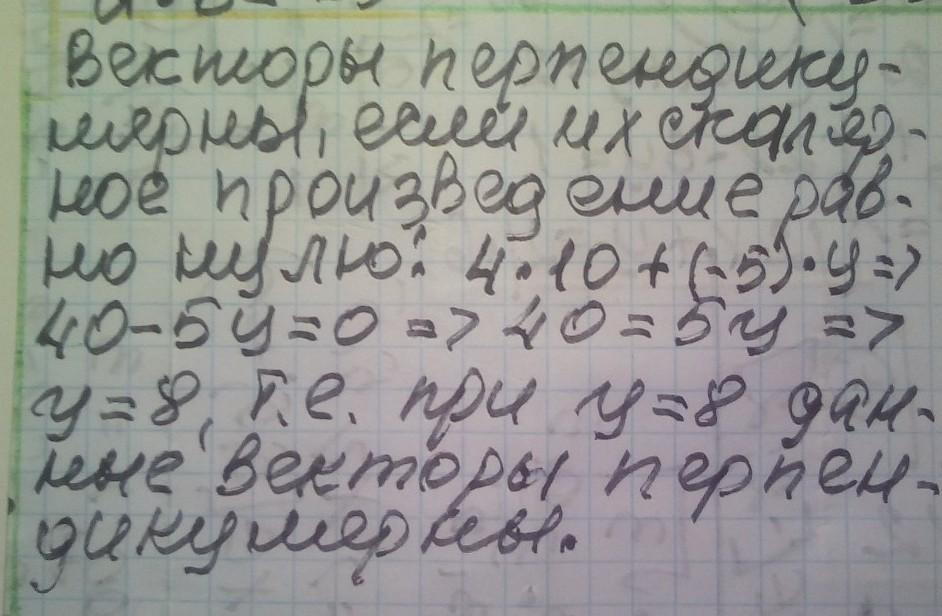 Векторы перпендику-
лярны, если их скаляр-
ное произведение рав-
но нулю: 4·10+(-5)·y=>
40-5y=0 => 40=5y =>
y=8, т.е. при y=8 дан-
ные векторы перпен-
дикулярны.